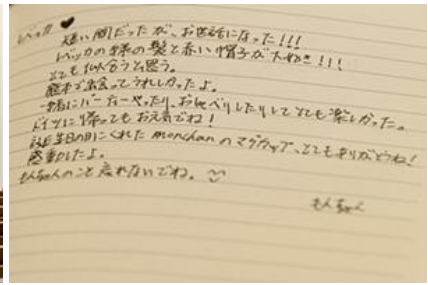 レベッカ ♥
短い間だったが、お世話になった!!!
レベッカの緑の髪と赤い帽子が大好き!!!
とても似合うと思う。
熊本で出会ってうれしかったよ。
一緒にパーティーやったり、おしゃべりしたりしてとても楽しかった。
ドイツに帰ってもお元気でね!
誕生日の日にくれた monchan のマグカップ、とてもありがとうね!
感動したよ。
もんちゃんのこと忘れないでね。
もんちゃん